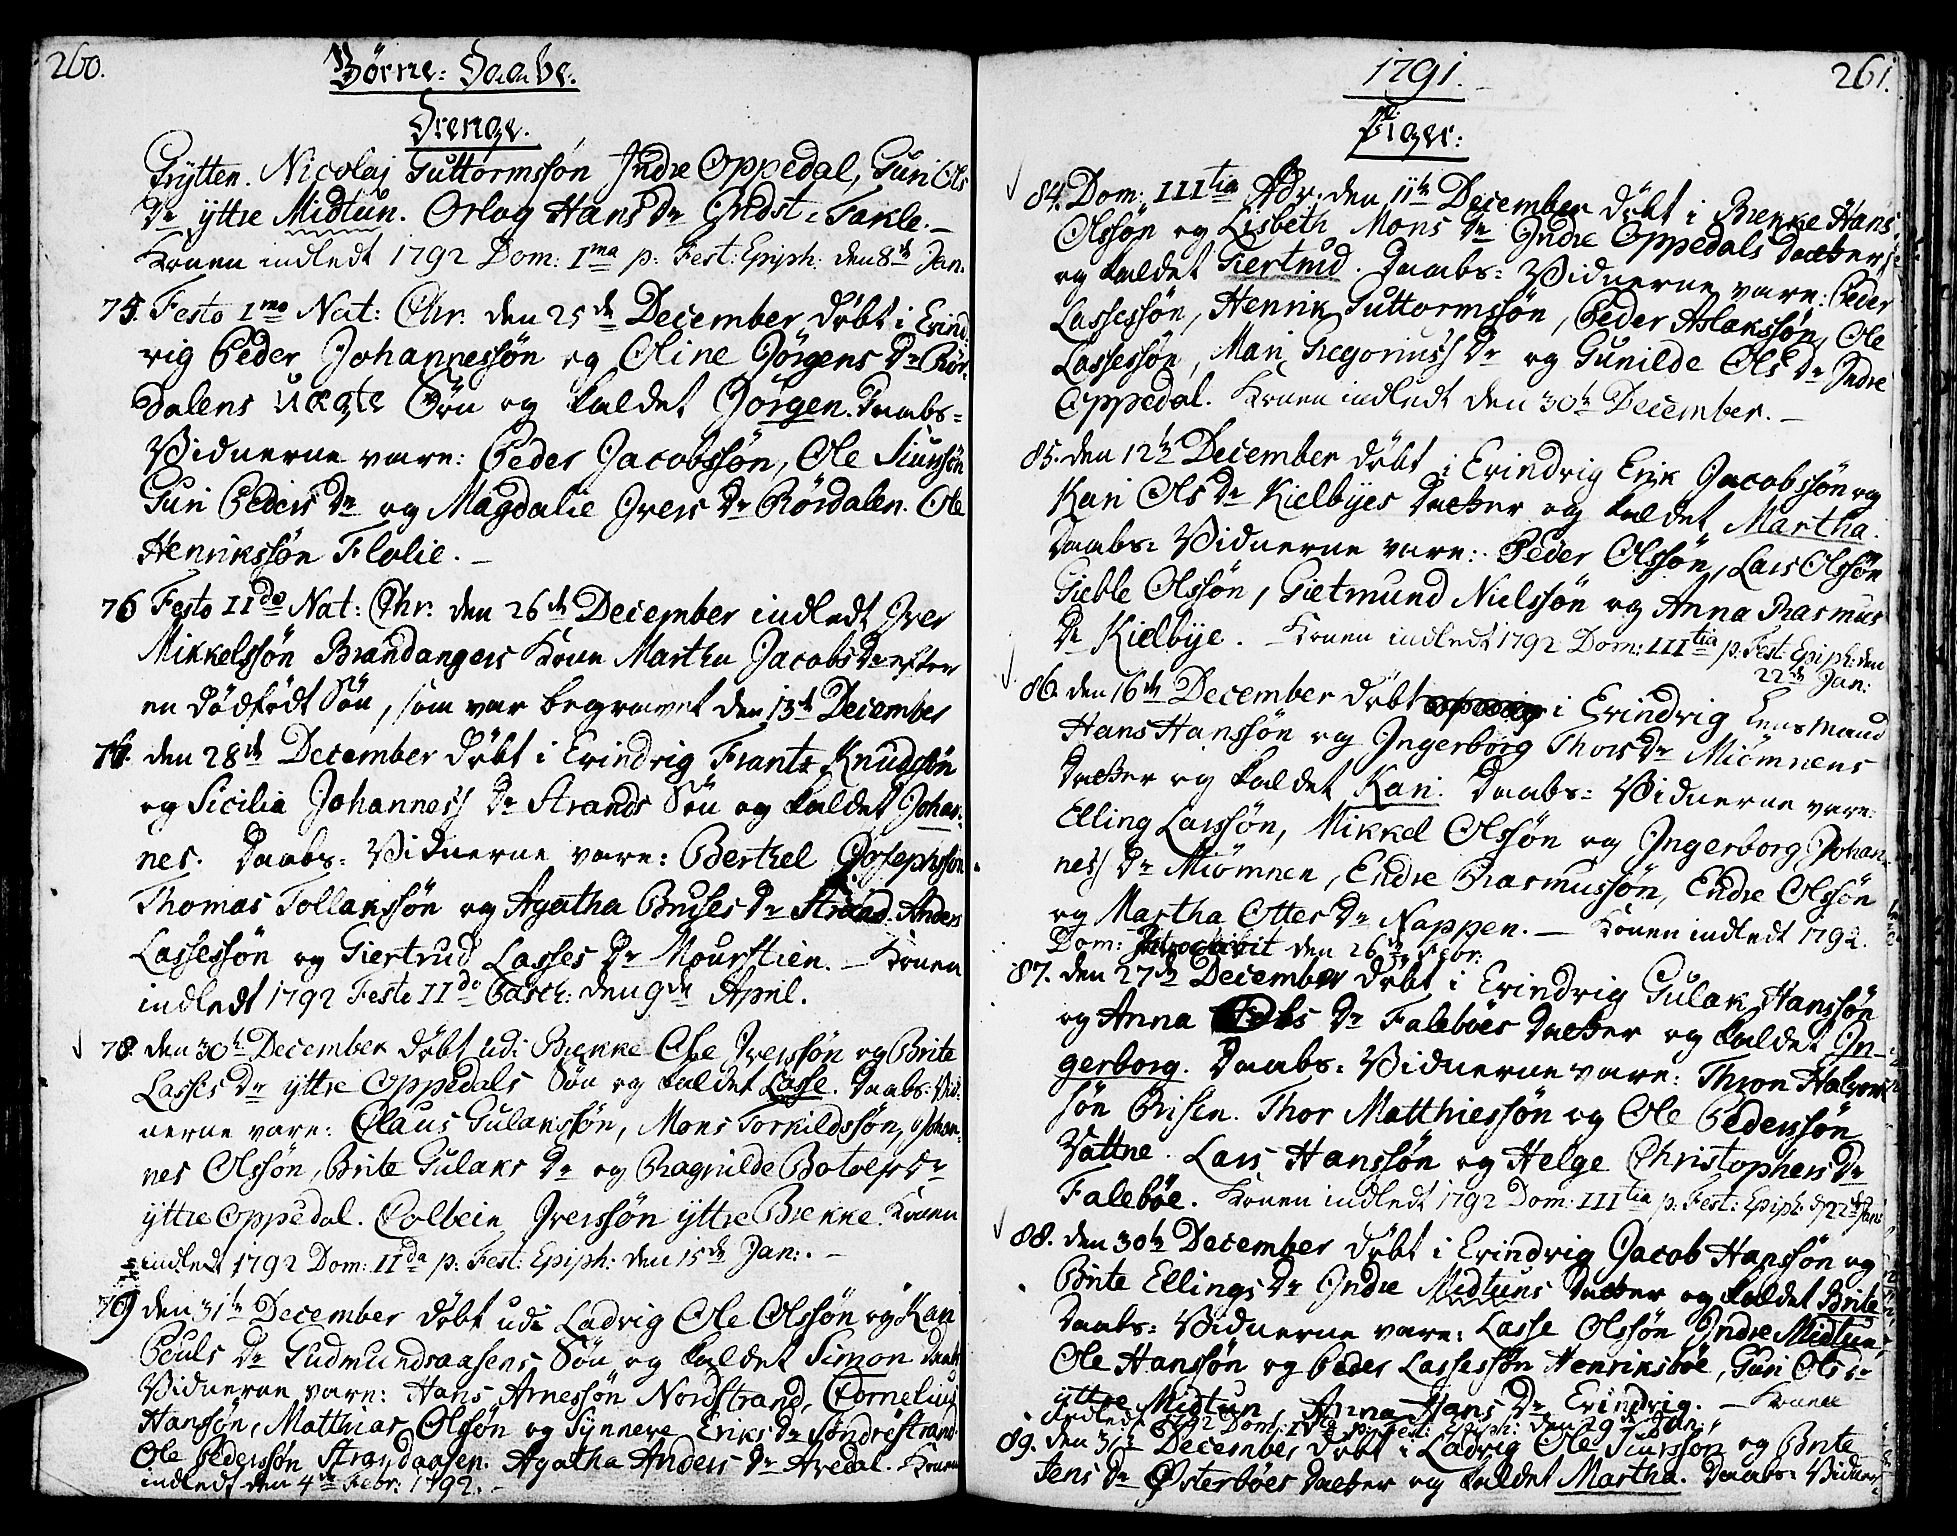 260.
Børne-Daabe.
Drenge.
Frytten. Nicolai Guttormssøn Indre Oppedal, Guri Ols
Dr yttre Midtun. Orlog Hans Dr Yndst. Takle.
Konen indledt 1792 Dom: Ima p: Fest: Epiph: den 8de Jan.
75. Festo Imo Nat: Chr. den 25de December døbt i Evind-
vig Peder Johannessøn og Oline Jørgens Dr Rør-
dalens uægte Søn og kaldet Jørgen. Daabs-
Vidnerne vare: Peder Jacobssøn, Ole Siurssøn
Guri Peders Dr og Magdalie Ivers Dr Rørdalen. Ole
Henrikssøn Flolie.
76 Festo IIdo Nat: Chr. den 26de December indledt Iver
Mikkelssøn Brandangers Kone Martha Jacobs Dr efter
en dødfødt Søn, som var begravet den 13de December
den 28de December døbt i Evindvig Frantz Knudssøn
og Sicilia Johannes Dr Strands Søn og kaldet Johan-
nes. Daabs-Vidnerne vare: Berthel Josephssøn
Thomas Tollakssøn og Agatha Bruses Dr Strand. Anders
Lassessøn og Giertrud Lasses Dr Mourstien. Konen
indledt 1792 Festo IIdo Pasch: den 9de April.
78. den 30te December døbt udi Brekke Ole Iverssøn og Brite
Lasses Dr yttre Oppedals Søn og kaldet Lasse. Daabs-Vid-
nerne vare: Claus Gulakssøn, Mons Torkildssøn, Johan-
nes Olssøn, Brite Gulaks Dr og Ragnilde Botolfs Dr
yttre Oppedal. Colbein Iverssøn yttre Brekke. Konen
indledt 1792 Dom: IIda p: Fest: Epiph: den 15de Jan:.
79 den 31te December døbt udi Ladvig Ole Olssøn og Kari
Pouls Dr Gudmundsaasens Søn og kaldet Simon Daabs
Vidnerne vare: Hans Arnessøn Nordstrand, Cornelius
Hanssøn, Matthias Olssøn og Synneve Eriks Dr Søndrestrand
Ole Pederssøn Strandaasen. Agatha Anders Dr Avedal. Konen
indledt den 4de Febr: 1792.
1791.
261.
Piger:
84. Dom: IIItia Adv: den 11te December døbt i Brekke Hans
Olssøn og Lisbeth Mons Dr Yndre Oppedals Datter
og kaldet Giertrud. Daabs-Vidnerne vare: Peder
Lassessøn, Henrik Guttormssøn, Peder Aslakssøn, Ole
Lassessøn, Mari Gregorius Dr og Gunilde Ols Dr Indre
Oppedal. Konen indledt den 30te December.
85. den 12te December døbt i Evindvig Erik Jacobssøn og
Kari Ols Dr Kielbyes Datter og kaldet Martha.
Daabs-Vidnerne vare: Peder Olssøn, Lars Olssøn
Gieble Olssøn, Gietmund Nielssøn og Anna Rasmus
Dr Kielbye. Konen indledt 1792 Dom: IIItia p: Fest: Epiph: den
22de Jan:
86. den 16de December døbt i Evindvig Lensmand
Hans Hanssøn og Ingerborg Thors Dr Miømnens
Datter og kaldet Kari. Daabs-Vidnerne vare:
Elling Larssøn, Mikkel Olssøn og Ingerborg Johan-
nes Dr Miømnen, Endre Rasmussøn, Endre Olssøn
og Martha Otters Dr Nappen. Konen indledt 1792.
Dom: den 26de Febr:
87. den 27de December døbt i Evindvig Gulak Hanssøn
og Anna Dr Falebøes Datter og kaldet In-
gerborg. Daabs-Vidnerne vare: Thron Halvor
søn Risen. Thor Matthiessøn og Ole Pederssøn
Vattne. Lars Hanssøn og Helge Christophers Dr
Falebøe. Konen indledt 1792 Dom: IIItia p: Fest: Epiph: d 22de Jan:
88. den 30te December døbt i Evindvig Jacob Hanssøn og
Brite Ellings Dr Yndre Midtuns Datter og kaldet Brite
Daabs-Vidnerne vare: Lasse Olssøn Yndre Midtun,
Ole Hanssøn og Peder Lassessøn Henriksbøe, Guri Ols Dr
yttre Midtun, Anna Hans Dr Evindvig. Konen
indledt 1792 Dom: IVta p: Fest: Epiph: den 29de Jan:
89. den 31te December døbt i Ladvig Ole Siurssøn og Brite
Jens Dr Østerbøes Datter og kaldet Martha. Daabs-Vidner-